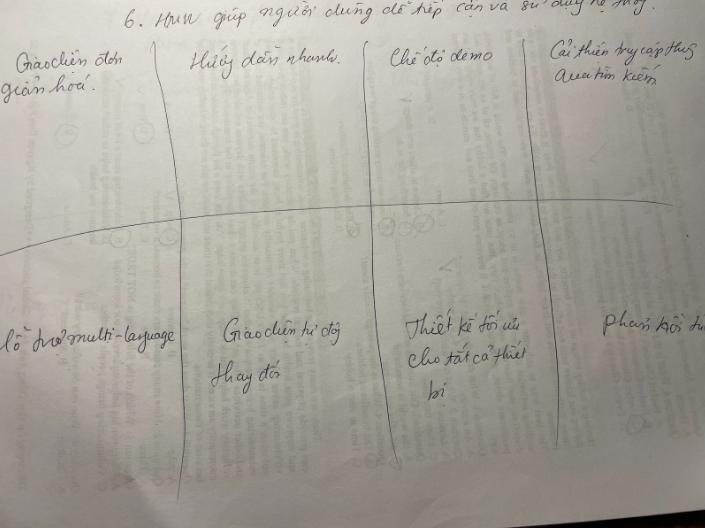 6. HMW giúp người dùng dễ tiếp cận và sử dụng hệ thống.
Giao diện đơn
giản hoá.
Hướng dẫn nhanh.
Chế độ demo
Cải thiện truy cập thông
qua tìm kiếm
hỗ trợ multi-language
Giao diện tự động
thay đổi
Thiết kế tối ưu
cho tất cả thiết
bị
phản hồi